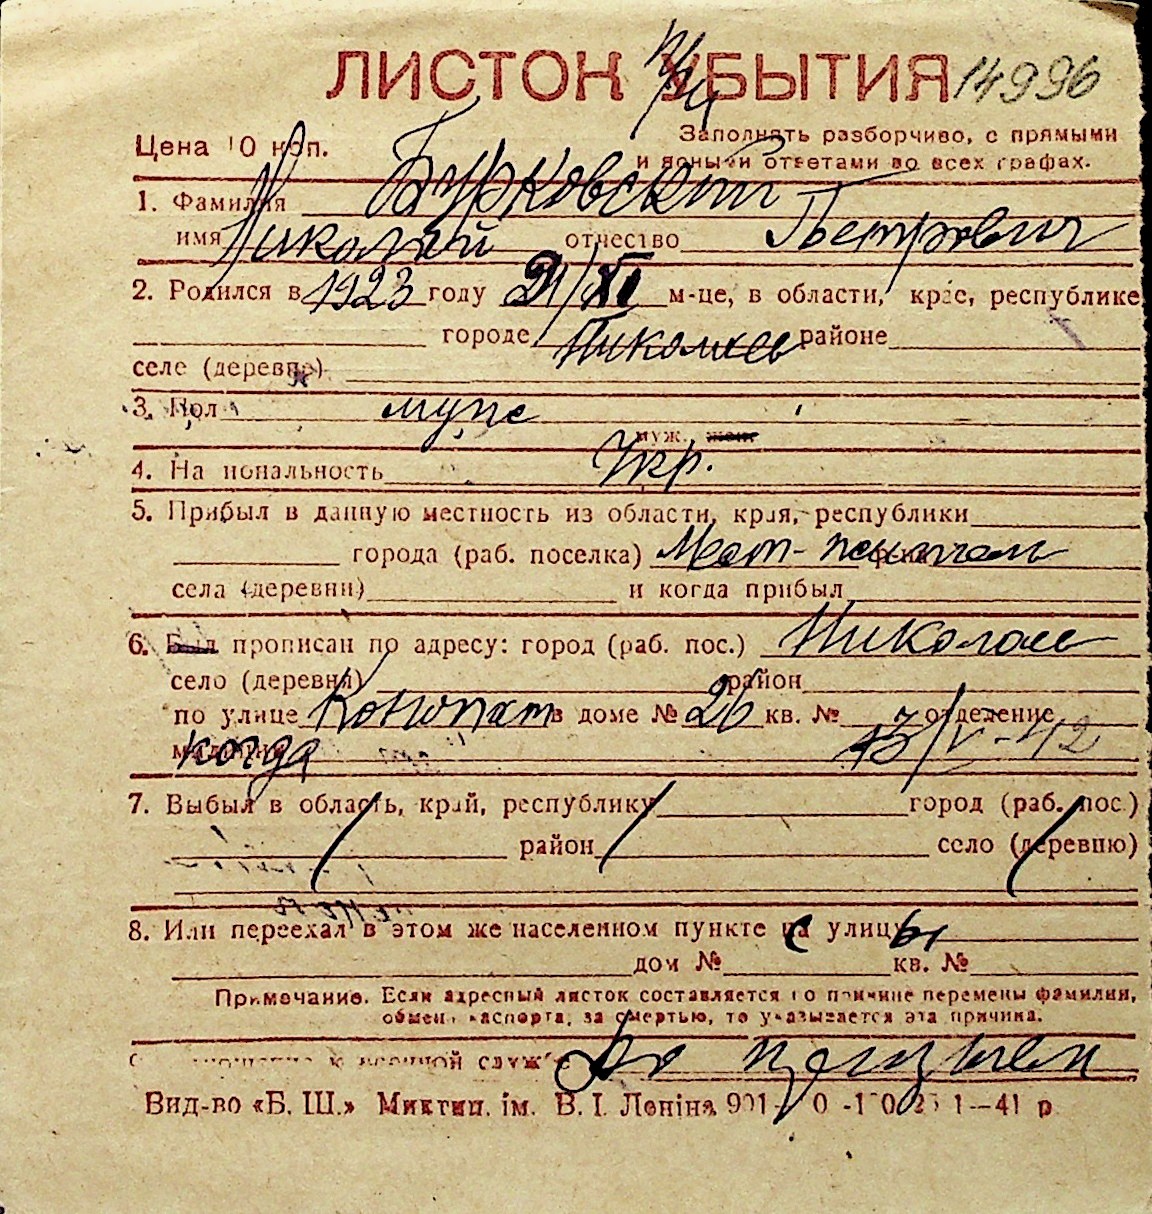 ЛИСТОК УБЫТИЯ 14996
Цена 10 коп.
Заполнять разборчиво, с прямыми
и ясными ответами во всех графах.
1. Фамилия Бурковский
имя Николай отчество Петрович
2. Родился в 1923 году 21/XI м-це, в области, крае, республике
городе Николаев районе
селе (деревне)
3. Пол муж
муж. жен.
4. Национальность Укр.
5. Прибыл в данную местность из области, края, республики
города (раб. поселка)
села (деревни) и когда прибыл
6. Был прописан по адресу: город (раб. пос.) Николаев
село (деревня) район
по улице в доме № 26 кв. № отделение
милиции когда 13/V-42
7. Выбыл в область, край, республику город (раб. пос.)
район село (деревню)
8. Или переехал в этом же населенном пункте с улицы
дом № кв. №
Примечание. Если адресный листок составляется по причине перемены фамилии,
обмена паспорта, за смертью, то указывается эта причина.
военной службе
Вид-во «Б. Ш.» Миктип. ім. В. І. Леніна 1—41 р